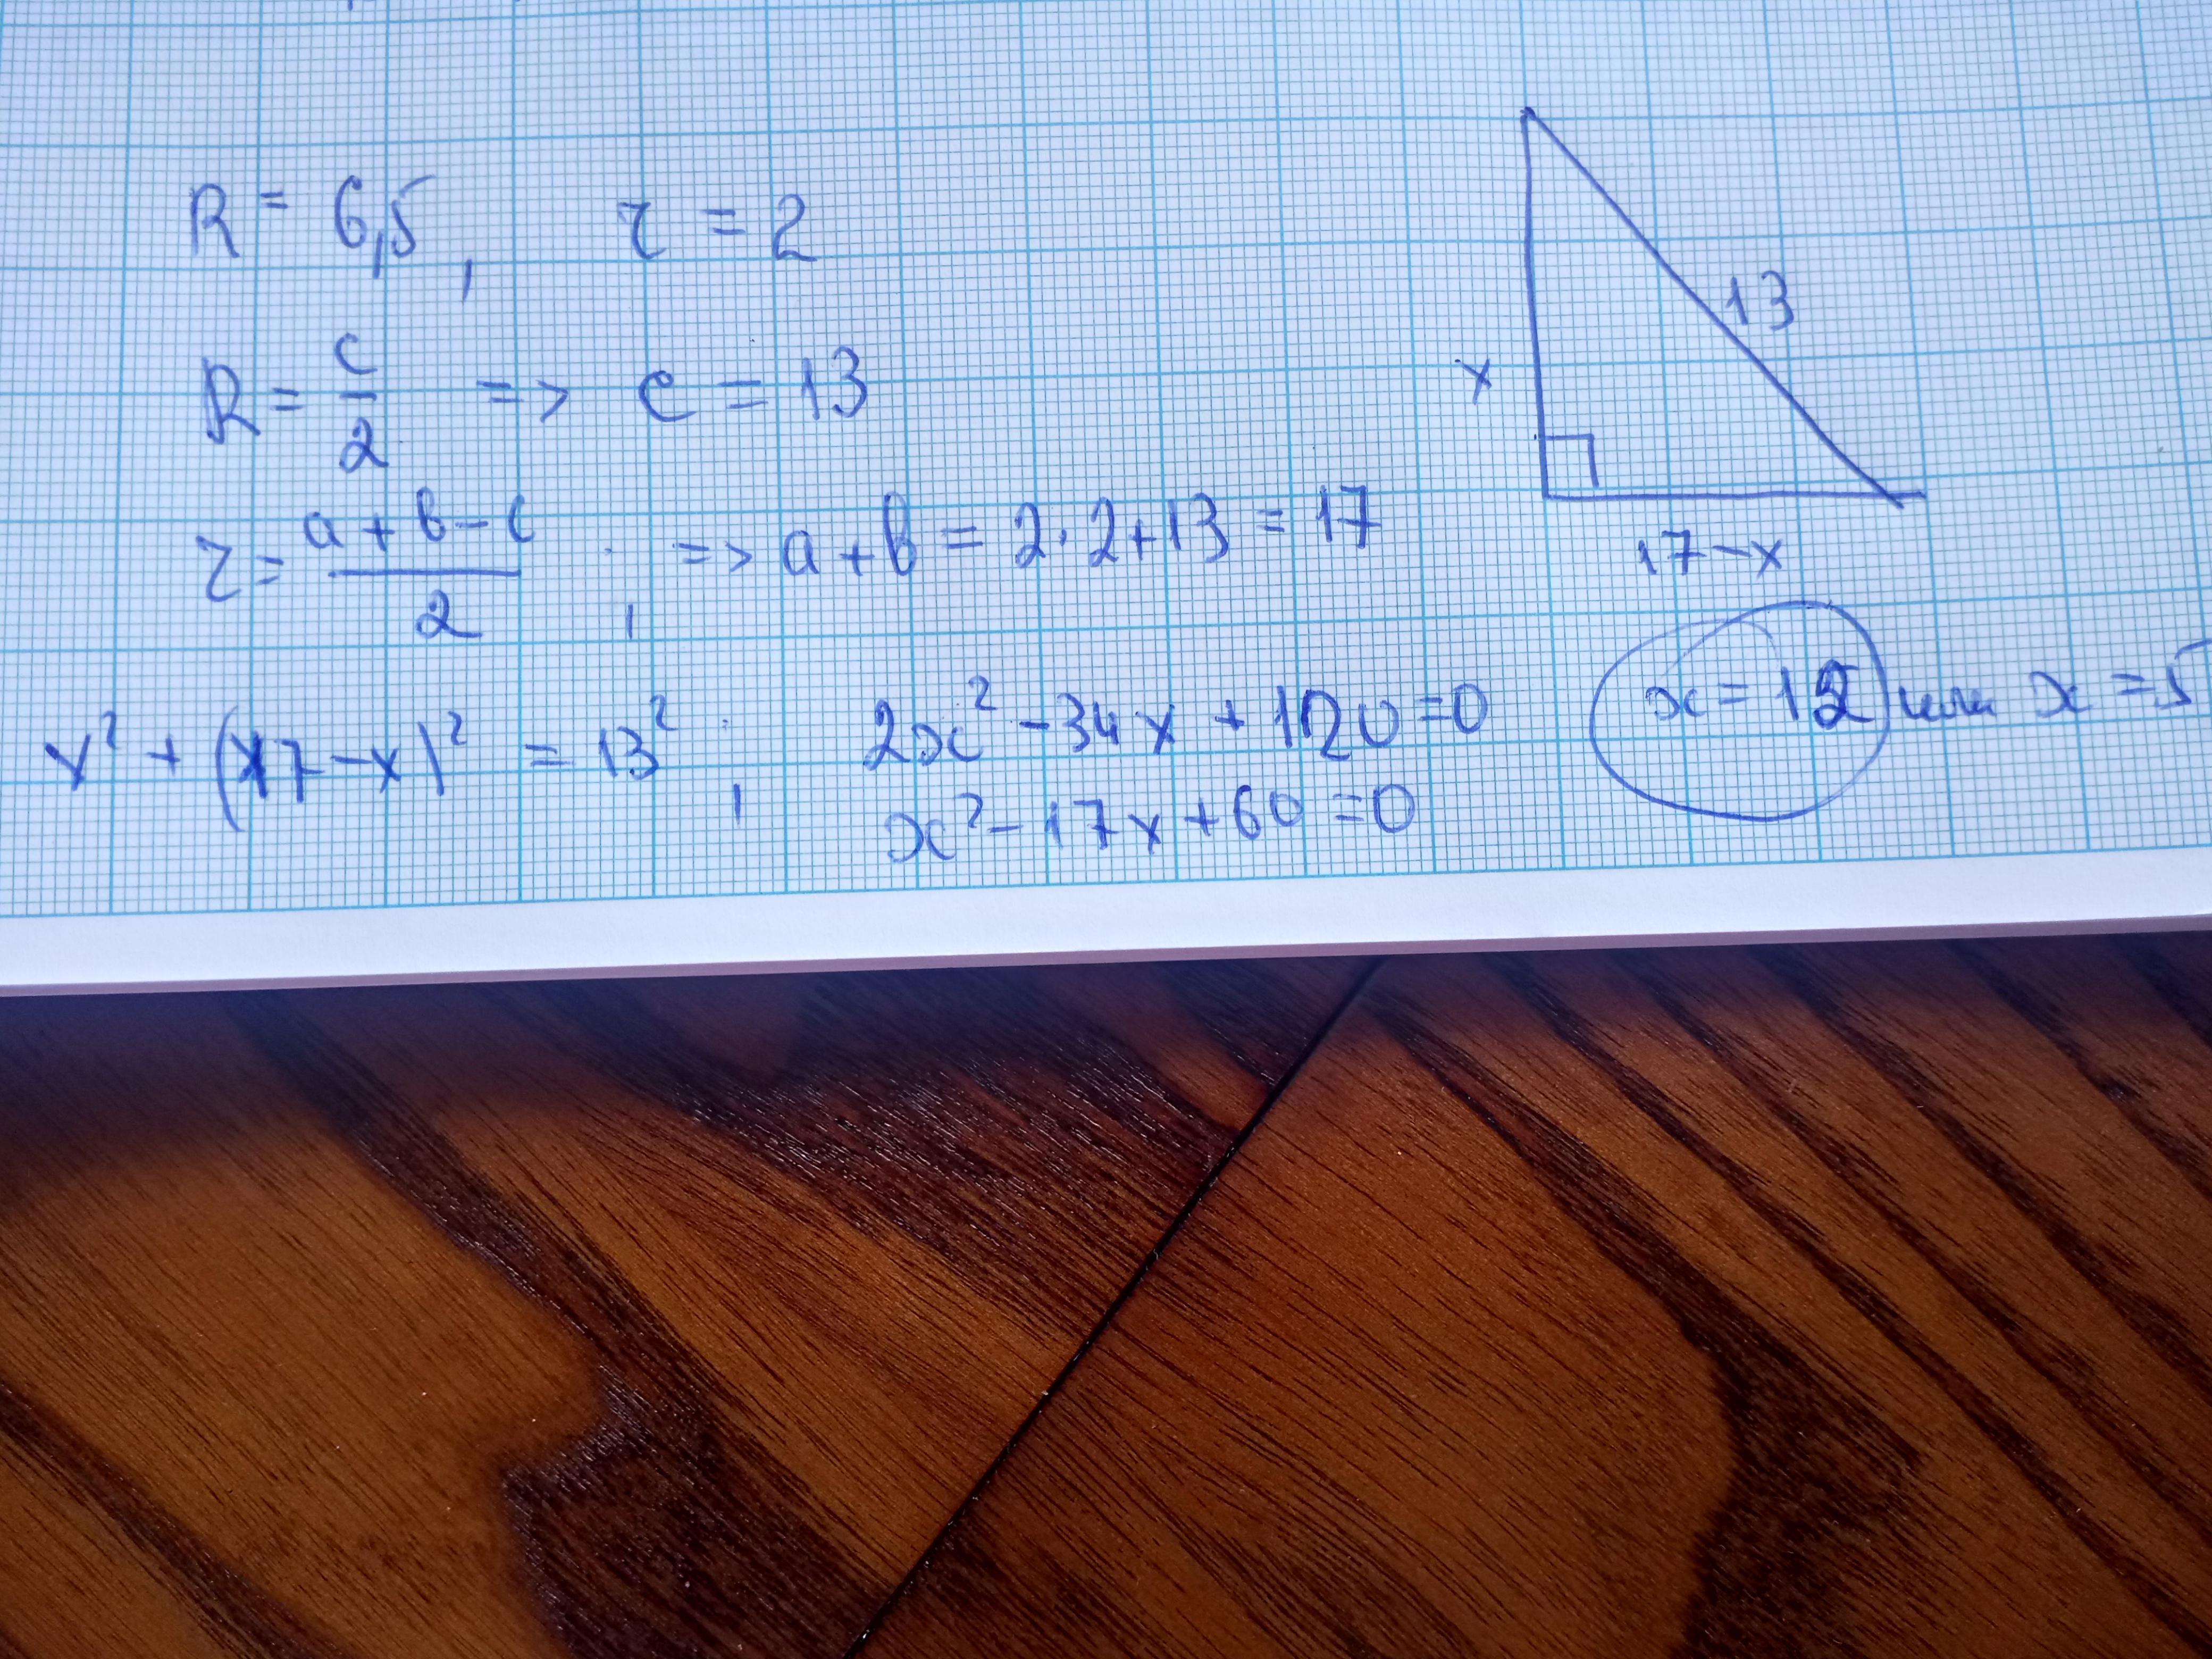 R = 6,5, r = 2
R = c/2 => c = 13
r = (a + b - c)/2, => a + b = 2·2+13 = 17
13
x
17-x
x² + (17-x)² = 13², 2x² - 34x + 120 = 0
x² - 17x + 60 = 0
x = 12 или x = 5